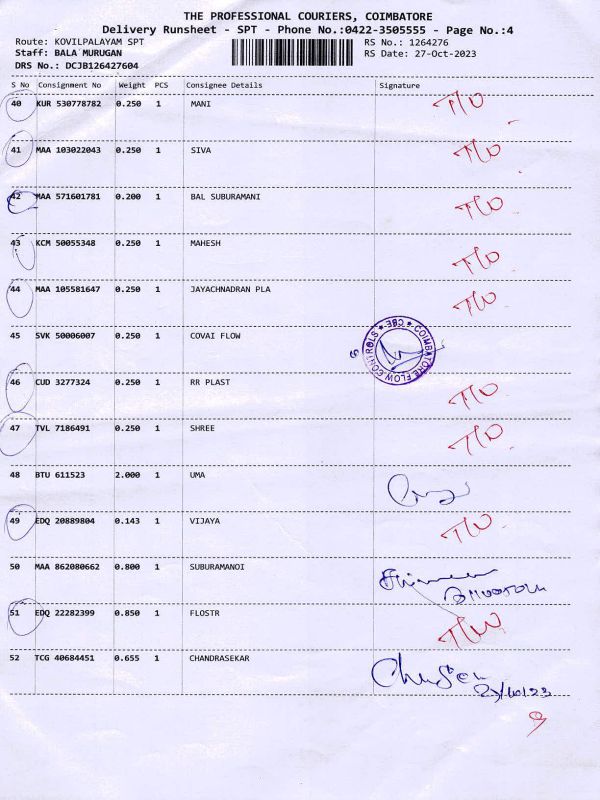 THE PROFESSIONAL COURIERS, COIMBATORE
Delivery Runsheet - SPT - Phone No.:0422-3505555 - Page No.:4
Route: KOVILPALAYAM SPT RS No.: 1264276
Staff: BALA MURUGAN RS Date: 27-Oct-2023
DRS No.: DCJB126427604
S No Consignment No Weight PCS Consignee Details Signature
40 KUR 530778782 0.250 1 MANI T/O
41 MAA 103022043 0.250 1 SIVA T/O
42 MAA 571601781 0.200 1 BAL SUBURAMANI T/O
43 KCM 50055348 0.250 1 MAHESH T/O
44 MAA 105581647 0.250 1 JAYACHNADRAN PLA T/O
45 SVK 50006007 0.250 1 COVAI FLOW
COIMBATORE FLOW CONTROLS * CBE *
46 CUD 3277324 0.250 1 RR PLAST T/O
47 TVL 7186491 0.250 1 SHREE T/O
48 BTU 611523 2.000 1 UMA
49 EDQ 20889804 0.143 1 VIJAYA T/O
50 MAA 862080662 0.800 1 SUBURAMANOI
51 EDQ 22282399 0.850 1 FLOSTR
52 TCG 40684451 0.655 1 CHANDRASEKAR
9